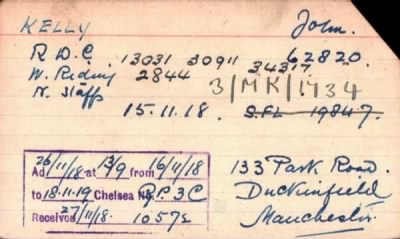 KELLY John.
R.D.C. 13031 30911 34317 62820.
W. Riding 2844
N. Staff 3/MK/1734
15.11.18. S.F.L. 19847.
26/11/18 13/9 16/11/18
Ad at from
to 18.11.19 Chelsea No R.P. 3C
Received 27/11/18. 1057E
133 Park Road.
Duckinfield
Manchester.